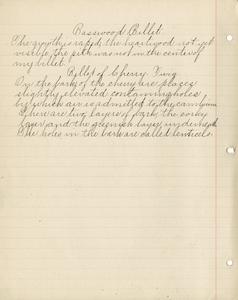 Basswood Billet.
The growth is rapid, the heartwood not yet
visible, the pith was not in the center of
my billet.
Billet of Cherry. Fung
On the bark of the cherry are places
slightly elevated containing holes
by which air is admitted to the cambium.
There are two layers of bark, the corky
layer and the greenish layer underneath.
The holes in the bark are called lenticels.